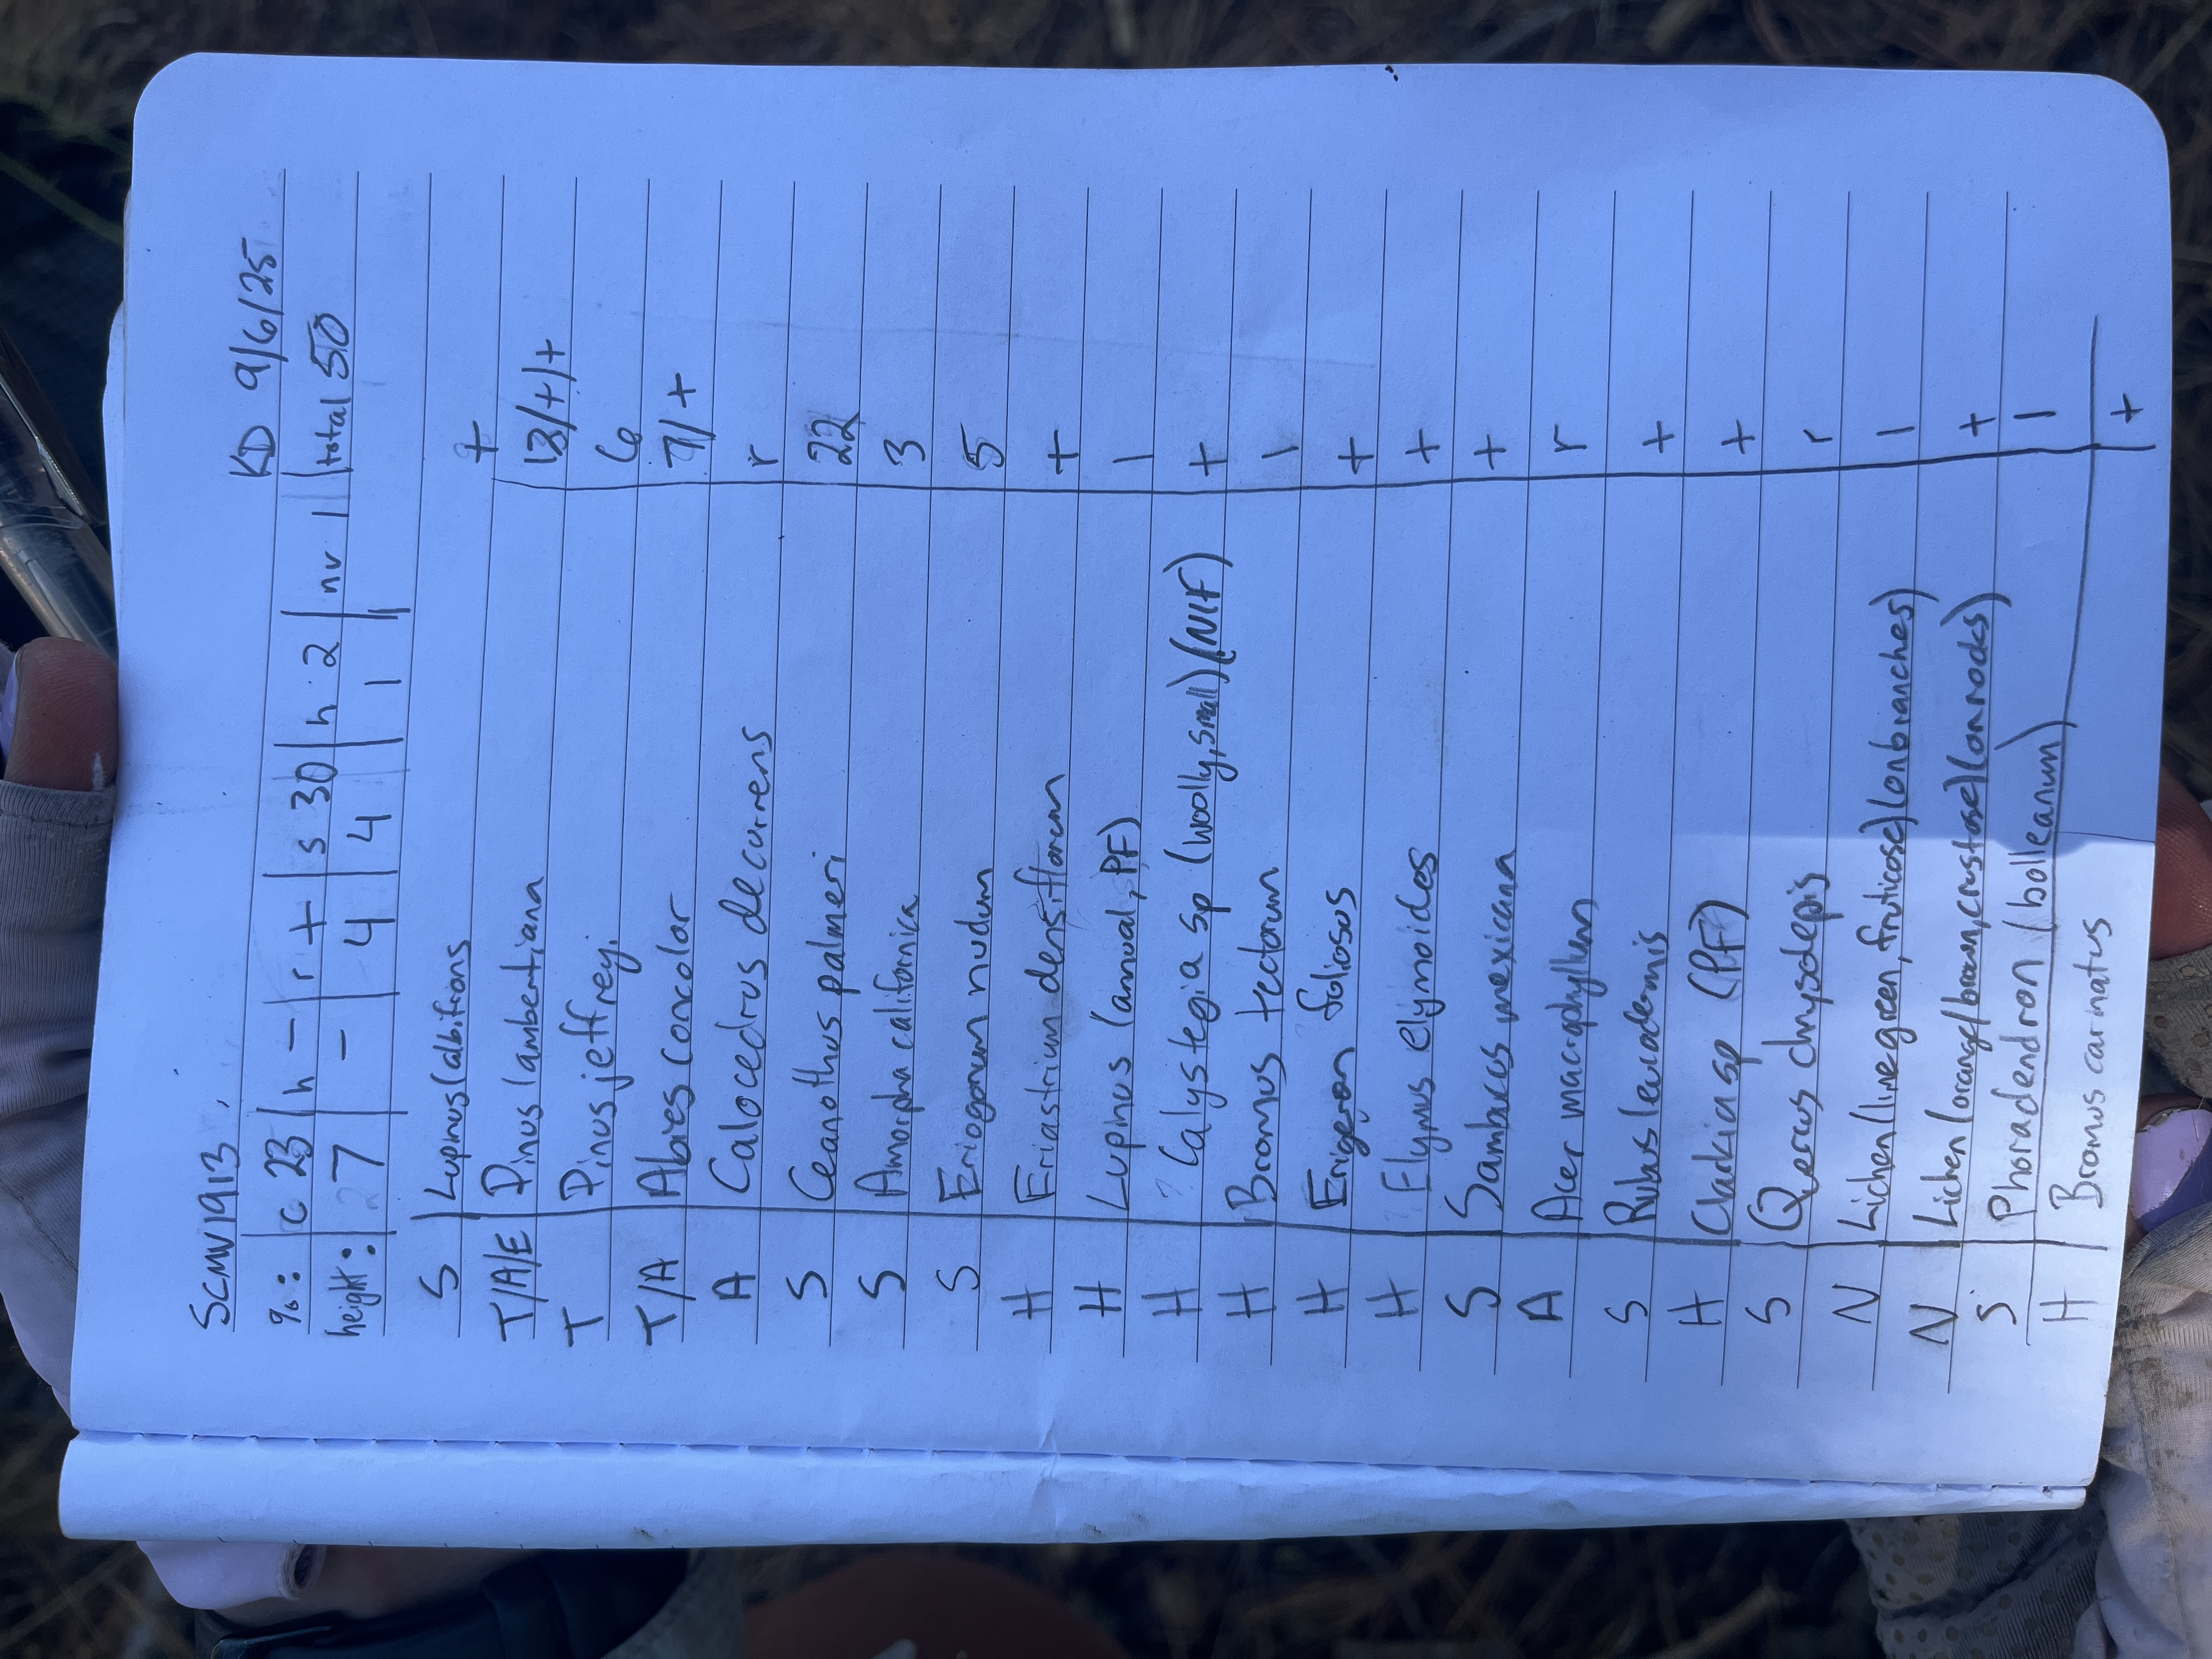 SCMV1913. KD 9/6/25
%: | c 23 | h - | r + | s 30 | h 2 | nv 1 | total 50
height: | 7 | - | 4 | 4 | 1 |
S | Lupinus (albifrons | +
T/A/E | Pinus lambertiana | 13/+/+
T | Pinus jeffreyi | 6
T/A | Abies concolor | 7/+
A | Calocedrus decurrens | r
S | Ceanothus palmeri | 22
S | Amorpha californica | 3
S | Eriogonum nudum | 5
H | Eriastrium densiflorum | +
H | Lupinus (annual, PF) | 1
H | Calystegia sp (woolly, small) (NIF) | +
H | Bromus tectorum | 1
H | Erigeron foliosus | +
H | Elymus elymoides | +
S | Sambucus mexicana | +
A | Acer macrophyllum | r
S | Rubus leucodermis | +
H | Clarkia sp (PF) | +
S | Quercus chrysolepis | r
N | Lichen (lime green, fruticose) (on branches) | 1
N | Lichen (orange/brown, crustose) (on rocks) | +
S | Phoradendron (bolleanum) | 1
H | Bromus carinatus | +